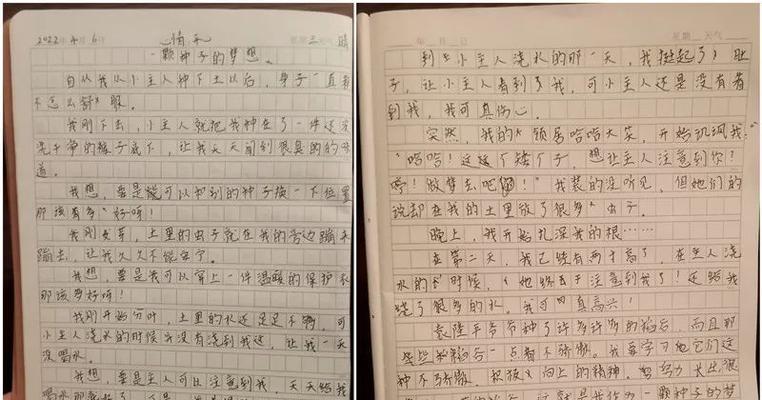 2022年4月6日 星期三 天气 晴
一颗种子的梦想。
自从我从小主人种下土以后，身子一直都
不怎么舒服。
我刚下去，小主人就把我种在了一件还没
洗干净的袜子底下，让我天天闻到很臭的的味
道。
我想，要是能可以和别的种子换一下位置
那该有多好呀！
我刚发芽，土里的虫子就在我的旁边蹦来
蹦去，让我久久不能安宁。
我想，要是我可以穿上一件温暖的保护衣
那该多好呀！
我刚开始分叶，土里的水还是足足不够，可
小主人浇水的时候并没有浇到我这，让我一天
没喝水。
我想，要是主人可以注意到我，天天给我
年 月 日 星期 天气
到了小主人浇水的那一天，我挺起了肚
子，让小主人看到了我，可小主人还是没有看
到我，我可真伤心。
突然，我的邻居哈哈大笑，开始讥讽我：
“哈哈！这这个矮个子，想让主人注意到你！
哼！做梦去吧！”我装的没听见，但她们的
说却在我的土里放了很多虫子。
晚上，我开始扎深我的根……
在第二天，我已经有两寸高了，在主人浇
水的时候，她终于注意到我了！还给我
浇了很多的水，我可真高兴！
袁隆平爷爷种了许多许多的稻谷，而且那
些些稻谷一点都不骄傲。我要学习他它们这
种不骄傲，积极向上的精神，努力长出很